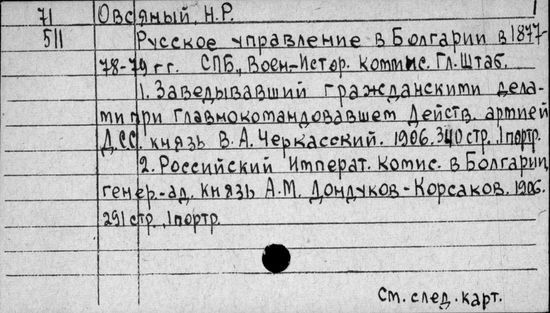 71 Овсяный, Н.Р. 1
511 Русское управление в Болгарии в 1877-
78-79 гг. СПБ., Воен.-Истор. комис. Гл. Штаб.
1. Заведывавший гражданскими дела-
ми при Главнокомандовавшем Действ. армией
Д.СС. князь В.А. Черкасский. 1906. 340 стр. 1 портр.
2. Российский Императ. комис. в Болгарии,
генер.-ад. князь А.М. Дондуков-Корсаков. 1906.
291 стр., 1 портр.
См. след. карт.